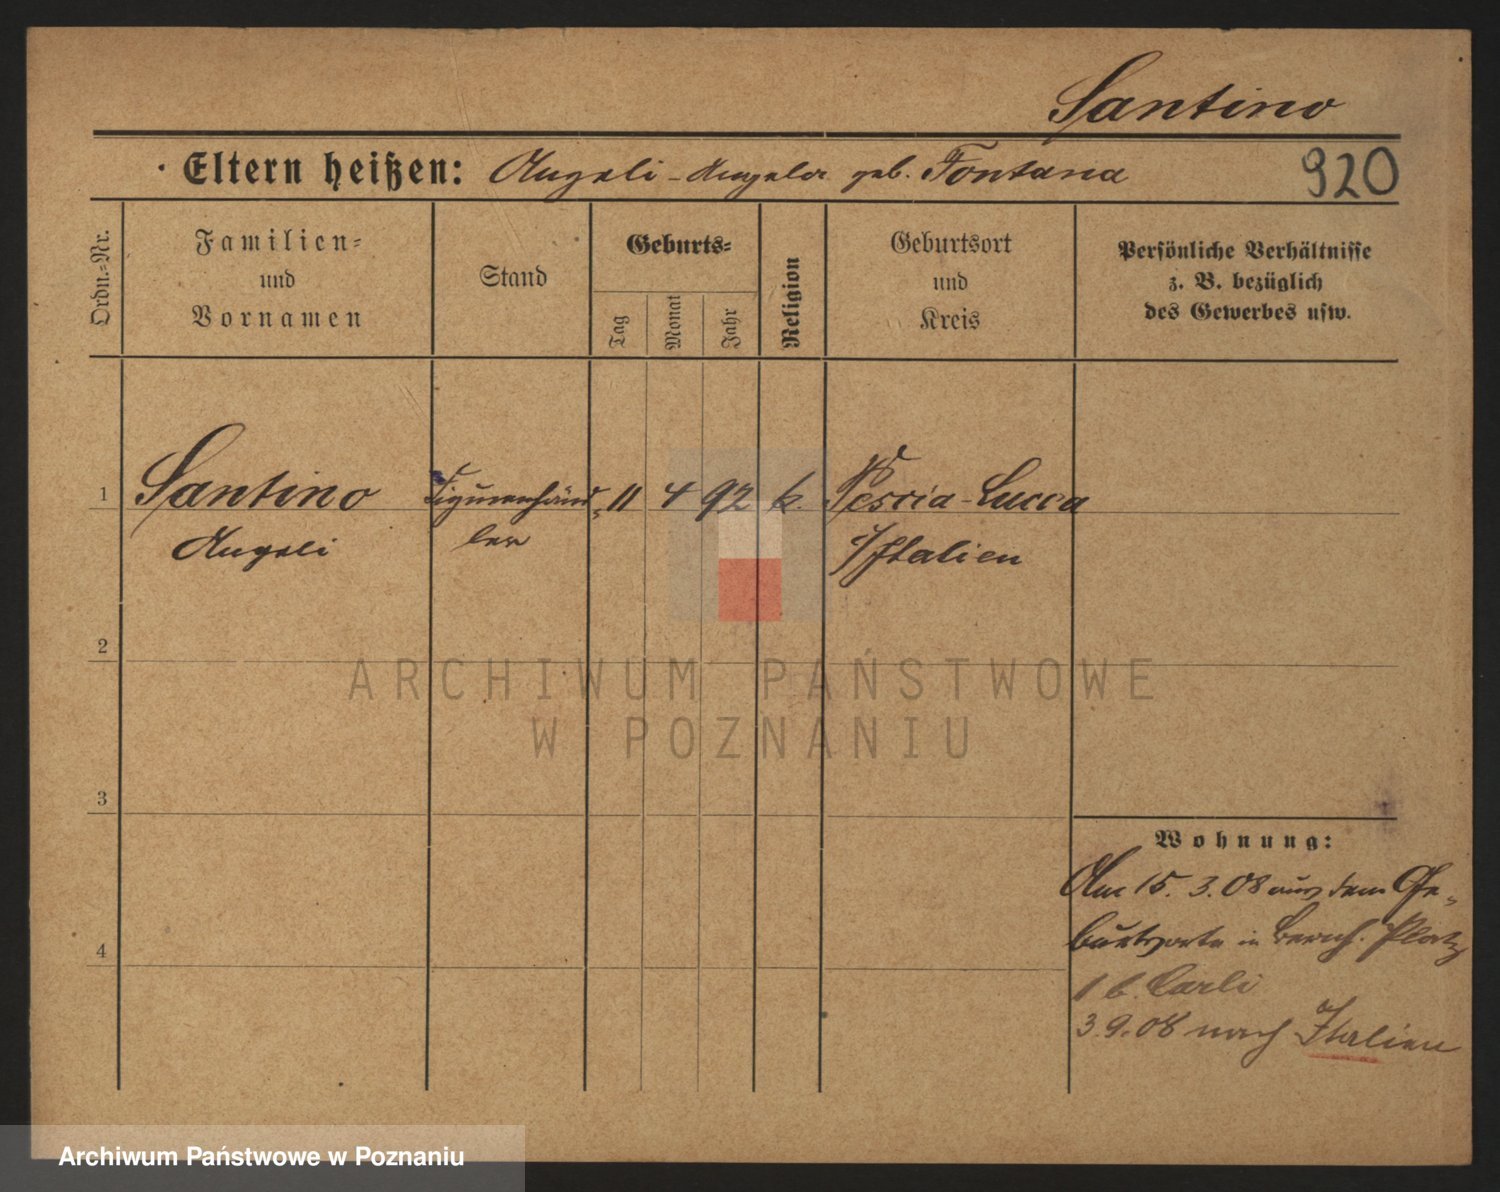 Santino
Eltern heißen: Angeli - Angela geb. Fontana 920
Ordn.-Nr.
Familien-
und
Vornamen
Stand
Geburts-
Tag
Monat
Jahr
Religion
Geburtsort
und
Kreis
Persönliche Verhältnisse
z. B. bezüglich
des Gewerbes usw.
1 Santino Figurenhänd- 11 4 92 k. Pescia-Lucca
Angeli ler i/Italien
2
ARCHIWUM PAŃSTWOWE
W POZNANIU
3
Wohnung:
Am 15. 3. 08 aus dem Ge-
burtsorte in Bernh. Platz
4
1 b. Carli
3.9.08 nach Italien
Archiwum Państwowe w Poznaniu